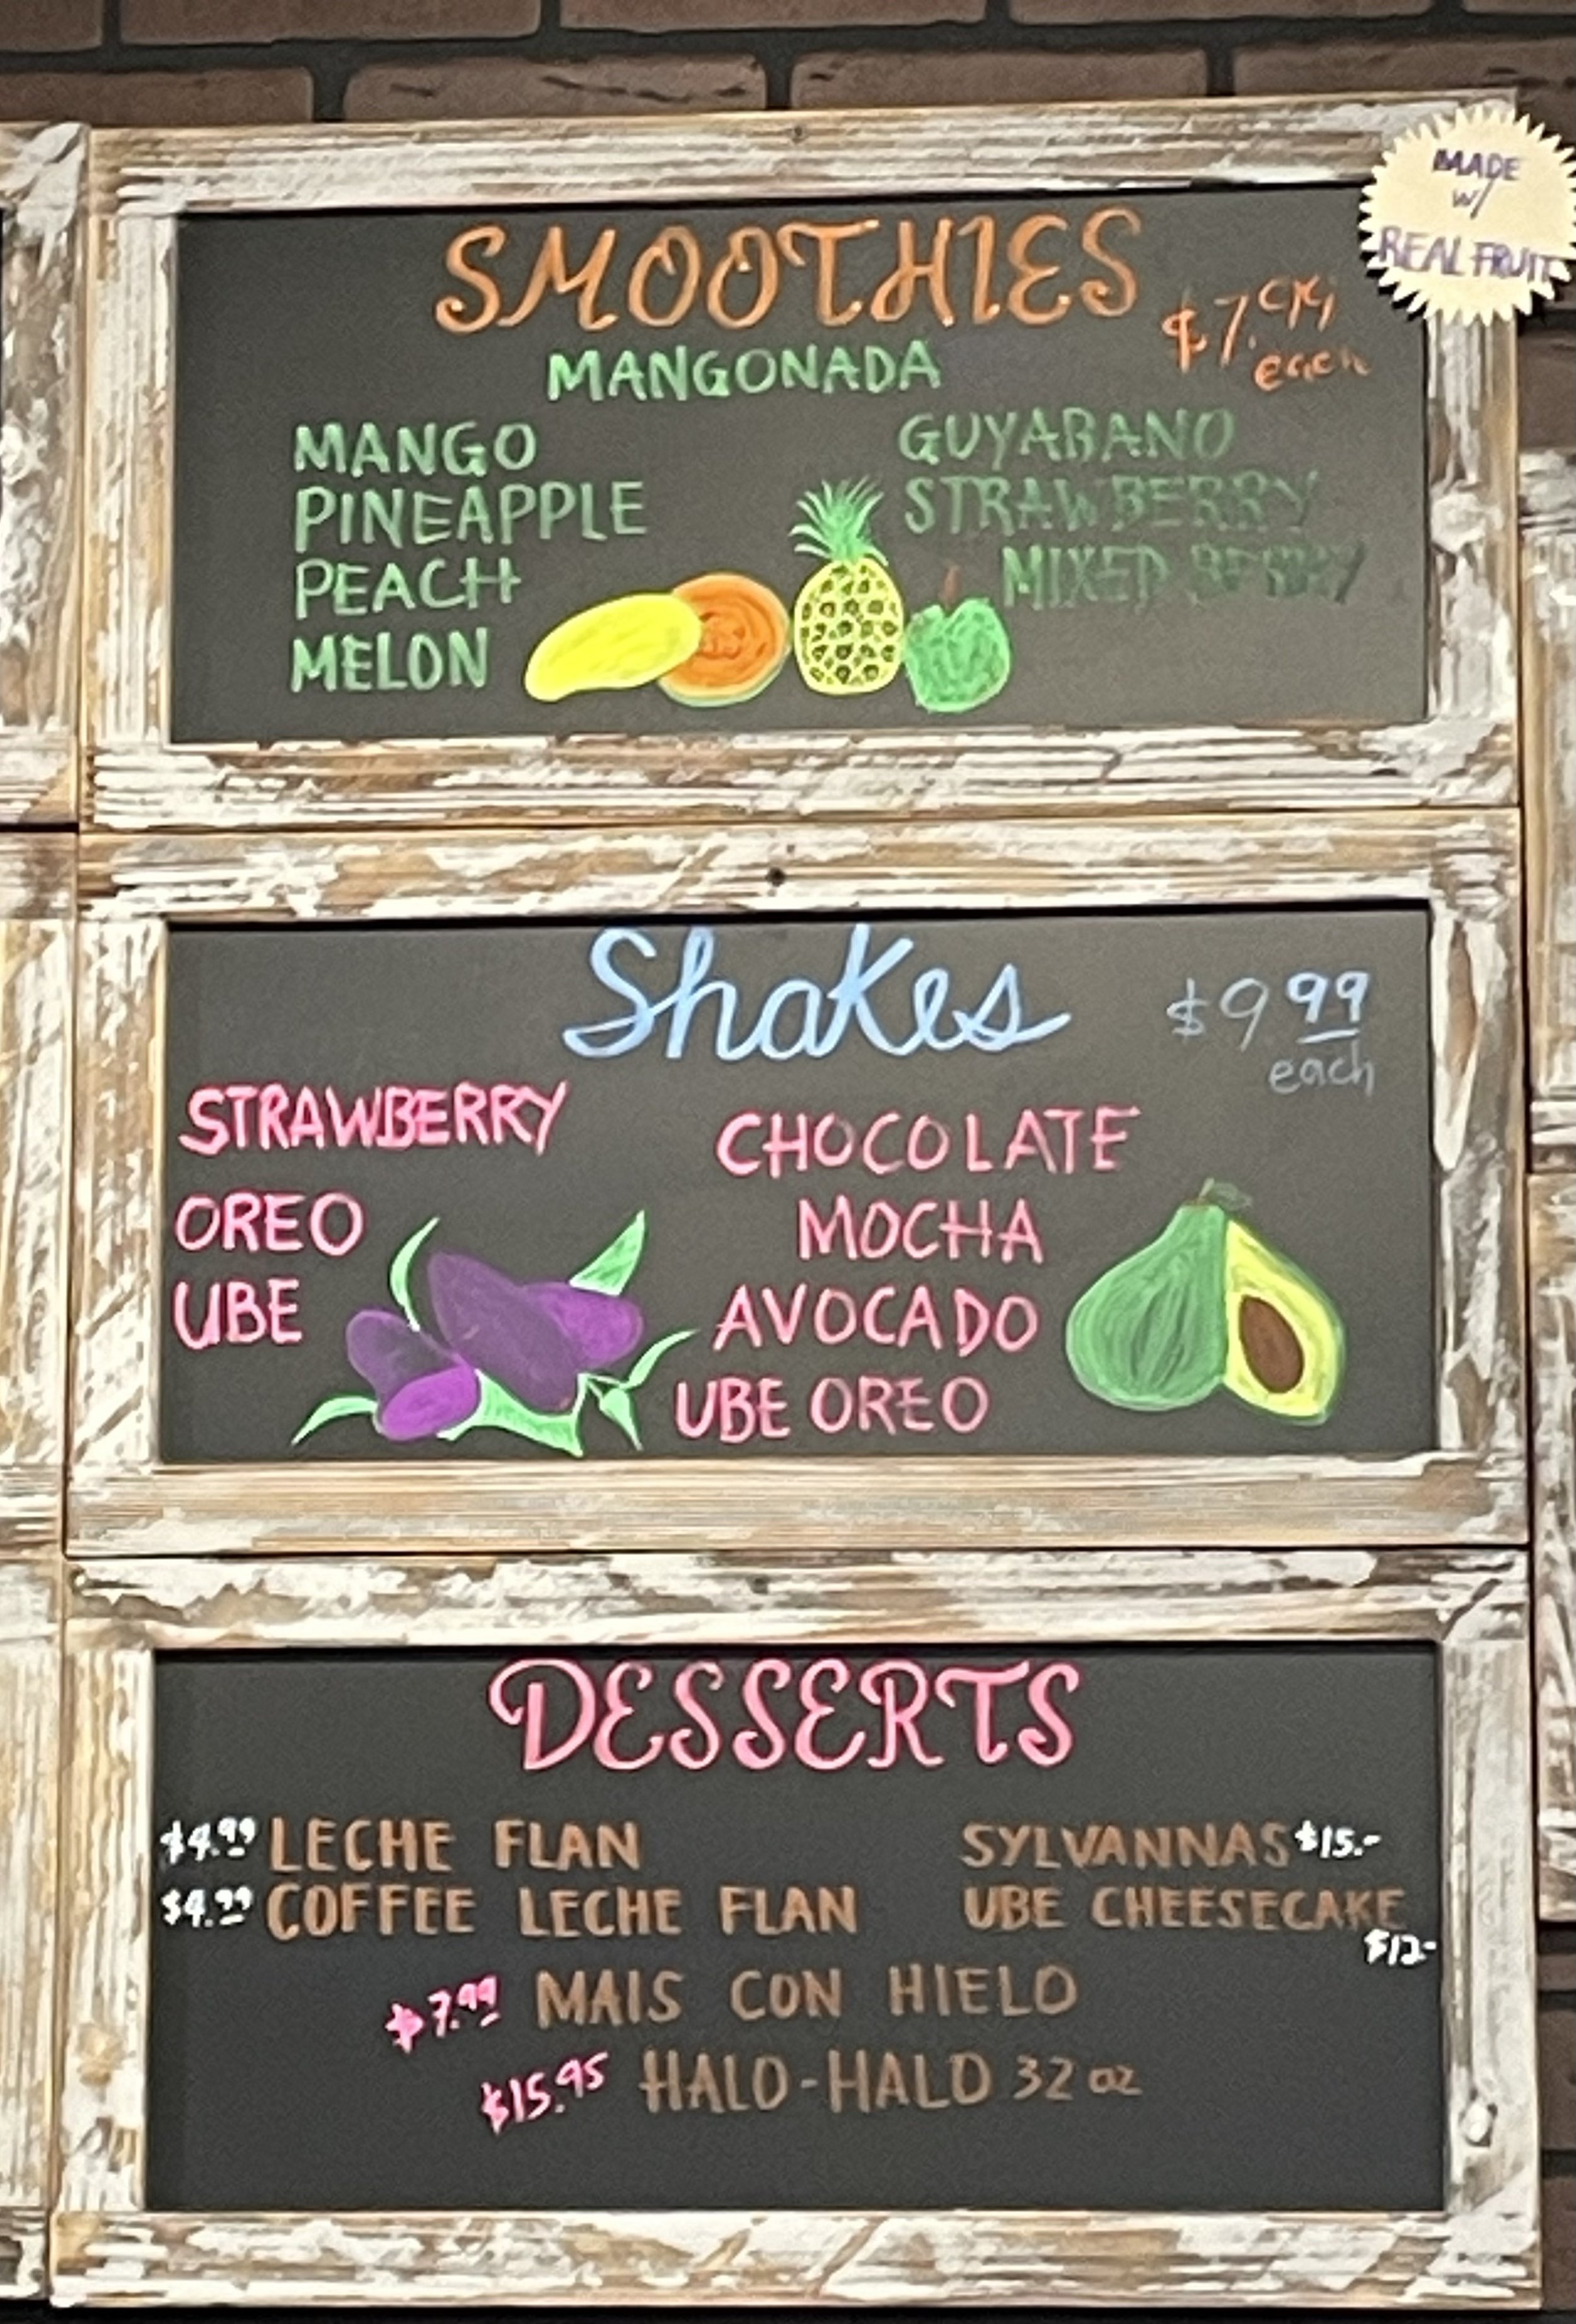 MADE
w/
REAL FRUIT
SMOOTHIES
$7.99
each
MANGONADA
MANGO
PINEAPPLE
PEACH
MELON
GUYABANO
STRAWBERRY
MIXED BERRY
Shakes
$9 99
each
STRAWBERRY
OREO
UBE
CHOCOLATE
MOCHA
AVOCADO
UBE OREO
DESSERTS
$4.99 LECHE FLAN
$4.99 COFFEE LECHE FLAN
SYLVANNAS $15.-
UBE CHEESECAKE
$12-
$7.99 MAIS CON HIELO
$15.95 HALO-HALO 32 oz